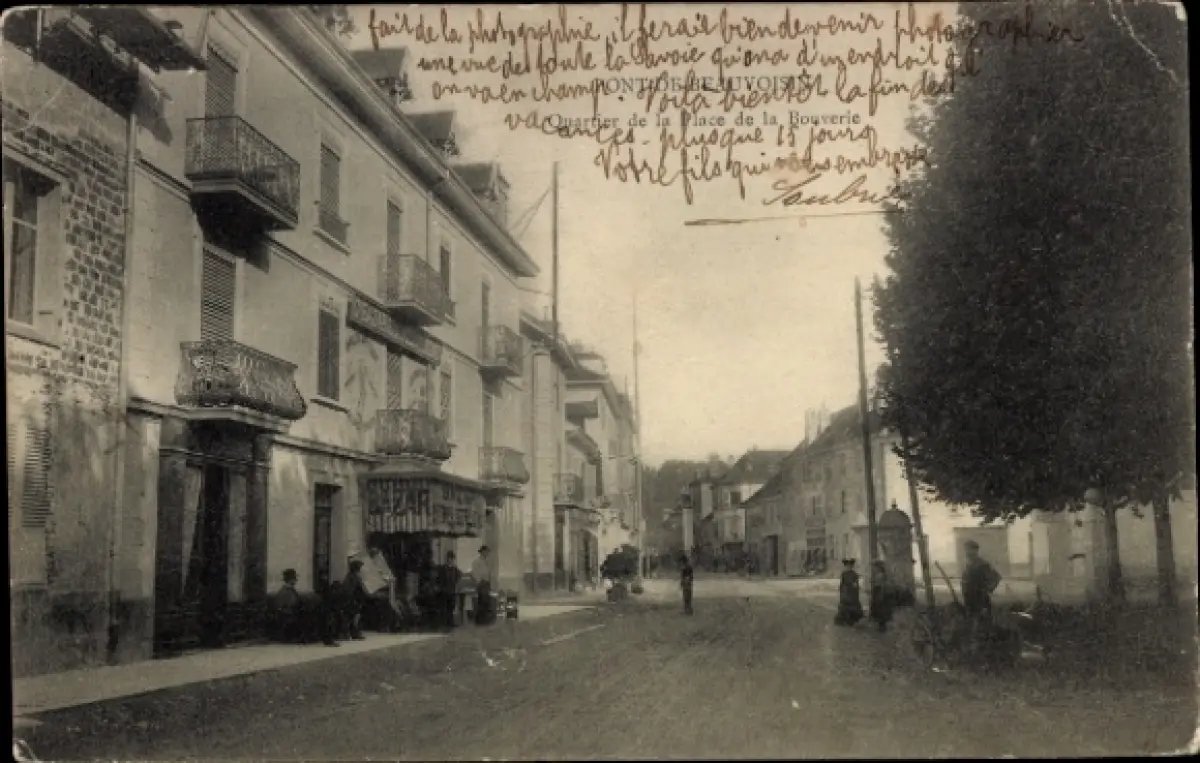 fait de la photographie, il ferait bien devenir photographier
une vue de toute la Savoie qu'on a d'un endroit où
on va en champ. Voilà bientôt la fin des
PONT-DE-BEAUVOISIN
Quartier de la Place de la Bouverie
vacances plus que 15 jours
Votre fils qui vous embrasse
BAZAR